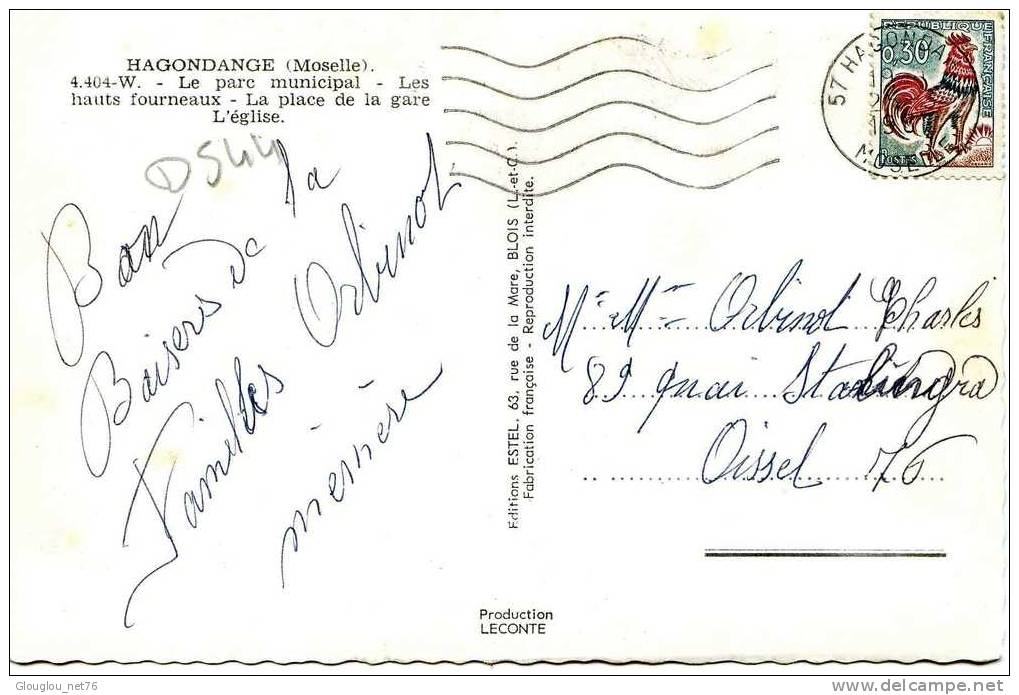 HAGONDANGE (Moselle).
4.404-W. - Le parc municipal - Les
hauts fourneaux - La place de la gare
L'église.
D544
Bon
Baisers de la
Familles Orbinot
Editions ESTEL, 63, rue de la Mare, BLOIS (L.-et-C.)
Fabrication française - Reproduction interdite.
RÉPUBLIQUE FRANÇAISE
0,30
POSTES
57 HAGONDA
MOSE
Mr Mme Orbinot Charles
89 quai Stalingra
Oissel 76
Production
LECONTE
Glouglou_net76
delcampe.net